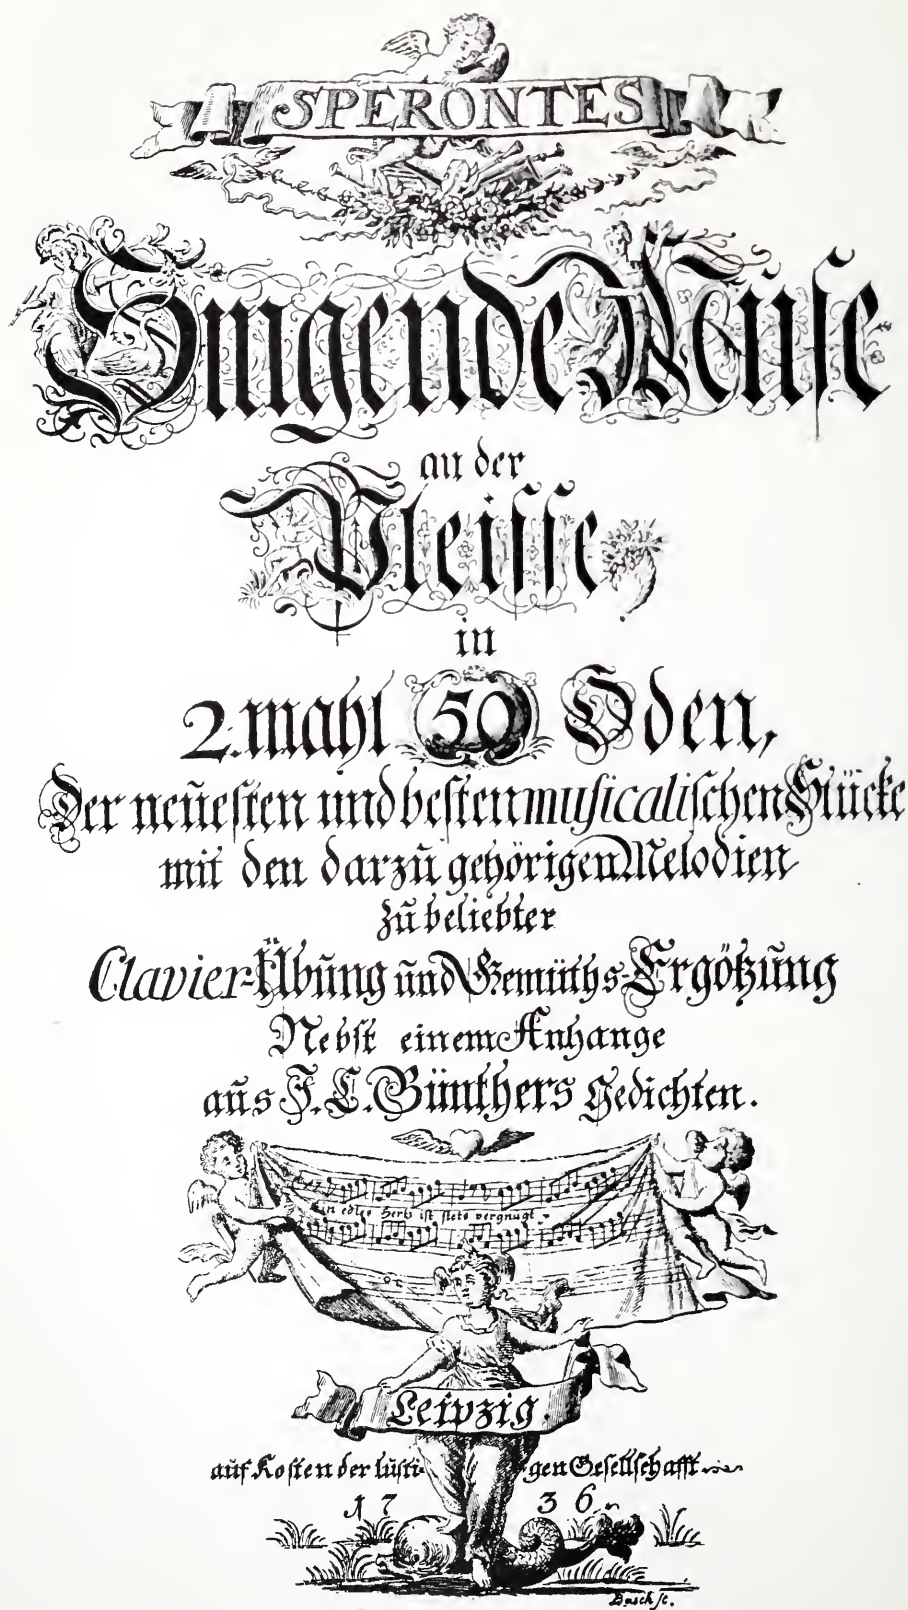 SPERONTES
Singende Muse
an der
Pleisse
in
2. mahl 50 Oden,
Der neüesten und besten musicalischen Stücke
mit den darzu gehörigen Melodien
zu beliebter
Clavier-Übung und Gemüths-Ergötzung
Nebst einem Anhange
aus J. C. Günthers Gedichten.
Ein edles Hertz ist stets vergnügt
Leipzig.
auf Kosten der lusti-gen Gesellschafft
1736.
Busch sc.